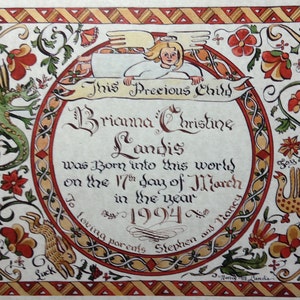 This Precious Child
Brianna Christine
Landis
was Born into this world
on the 17th day of March
in the year
1994
To Loving parents Stephen and Nancy
Luck